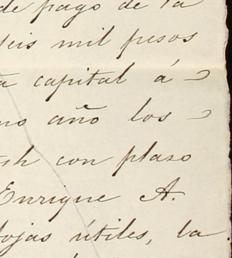 de pago de la
seis mil pesos
capital á
año los
con plazo
Enrique A.
hojas útiles, la